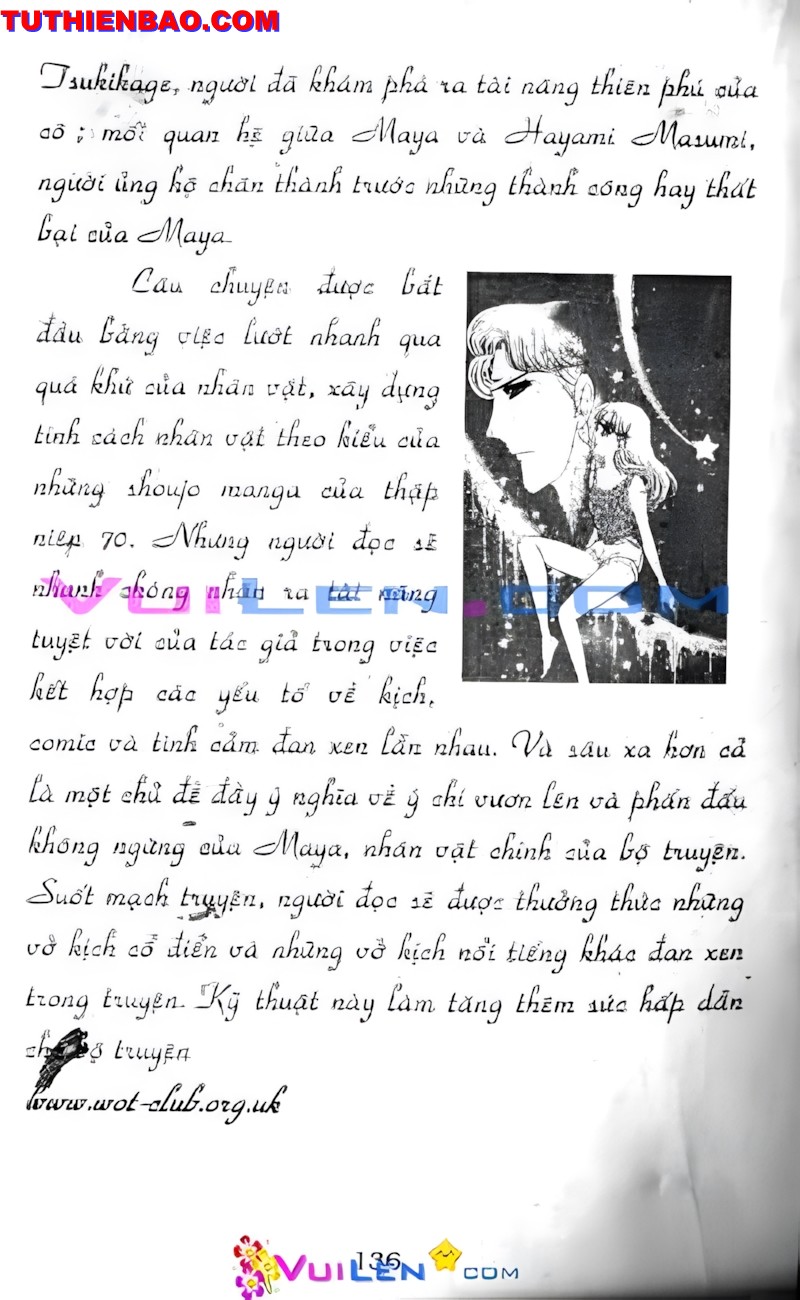 TUTHIENBAO.COM
Tsukikage, người đã khám phá ra tài năng thiên phú của
cô ; mối quan hệ giữa Maya và Hayami Masumi,
người ủng hộ chân thành trước những thành công hay thất
bại của Maya
Câu chuyện được bắt
đầu bằng việc lướt nhanh qua
quá khứ của nhân vật, xây dựng
tính cách nhân vật theo kiểu của
những shoujo manga của thập
niên 70. Nhưng người đọc sẽ
nhanh chóng nhận ra tài năng
tuyệt vời của tác giả trong việc
kết hợp các yếu tố về kịch,
comic và tình cảm đan xen lẫn nhau. Và sâu xa hơn cả
là một chủ đề đầy ý nghĩa về ý chí vươn lên và phấn đấu
không ngừng của Maya, nhân vật chính của bộ truyện.
Suốt mạch truyện, người đọc sẽ được thưởng thức những
vở kịch cổ điển và những vở kịch nổi tiếng khác đan xen
trong truyện. Kỹ thuật này làm tăng thêm sức hấp dẫn
cho bộ truyện
www.wot-club.org.uk
VUILEN.COM
136
VUILEN COM